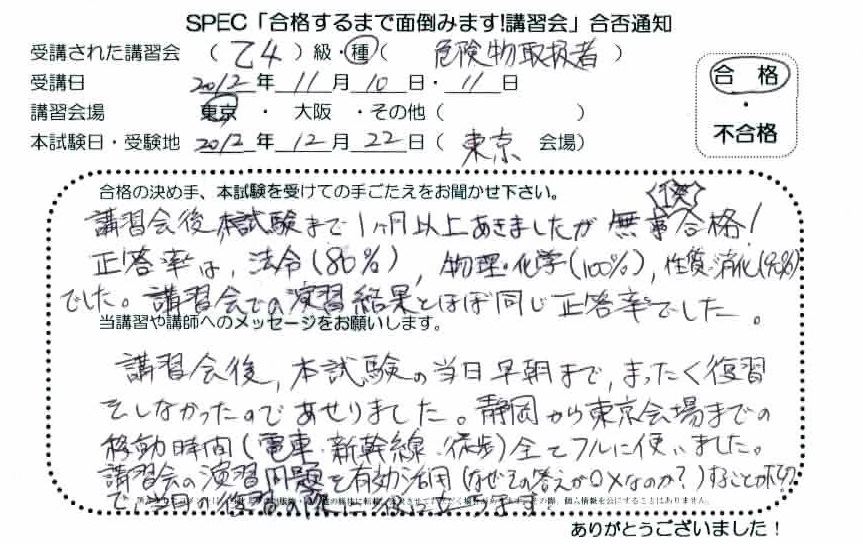 SPEC「合格するまで面倒みます!講習会」合否通知
受講された講習会 （ 乙4 ）級・種（ 危険物取扱者 ）
受講日 2012年11月10日・11日
合格
・
不合格
講習会場 東京 ・ 大阪 ・その他（ ）
本試験日・受験地 2012年12月22日（ 東京 会場）
合格の決め手、本試験を受けての手ごたえをお聞かせ下さい。
講習会後本試験まで1ヶ月以上あきましたが無事合格!
正答率は、法令(80%)、物理・化学(100%)、性質・消化(90%)
でした。講習会での演習結果とほぼ同じ正答率でした。
当講習や講師へのメッセージをお願いします。
講習会後、本試験の当日早朝まで、まったく復習
をしなかったのであせりました。静岡から東京会場までの
移動時間(電車、新幹線、徒歩)全てフルに使いました。
講習会の演習問題を有効活用(なぜその答えが○×なのか?)することが大切
で、当日の復習の際に役に立つます!
個人情報を公にすることはありません。
ありがとうございました！